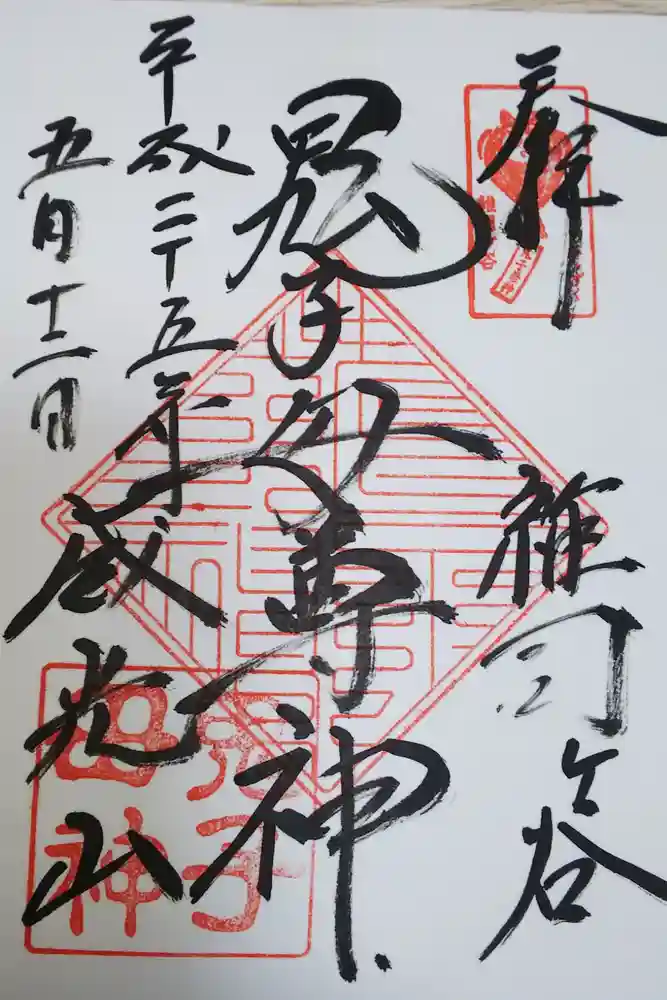 奉拝
雑司ケ谷
鬼子母尊神
平成二十五年
五月十二日
威光山
鬼子
母神